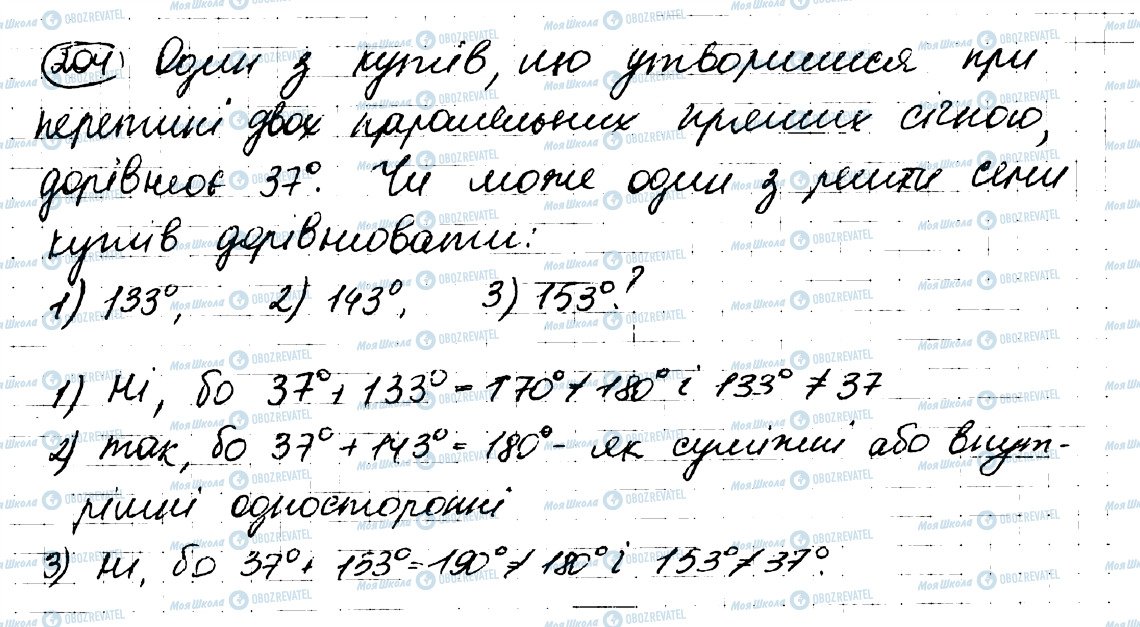 204 Один з кутів, що утворилися при
перетині двох паралельних прямих січною,
дорівнює 37°. Чи може один з решти семи
кутів дорівнювати:
1) 133°, 2) 143°, 3) 153°?
1) Ні, бо 37° + 133° = 170° ≠ 180° і 133° ≠ 37
2) так, бо 37° + 143° = 180° - як суміжні або внут-
рішні односторонні
3) Ні, бо 37° + 153° = 190° ≠ 180° і 153° ≠ 37°.